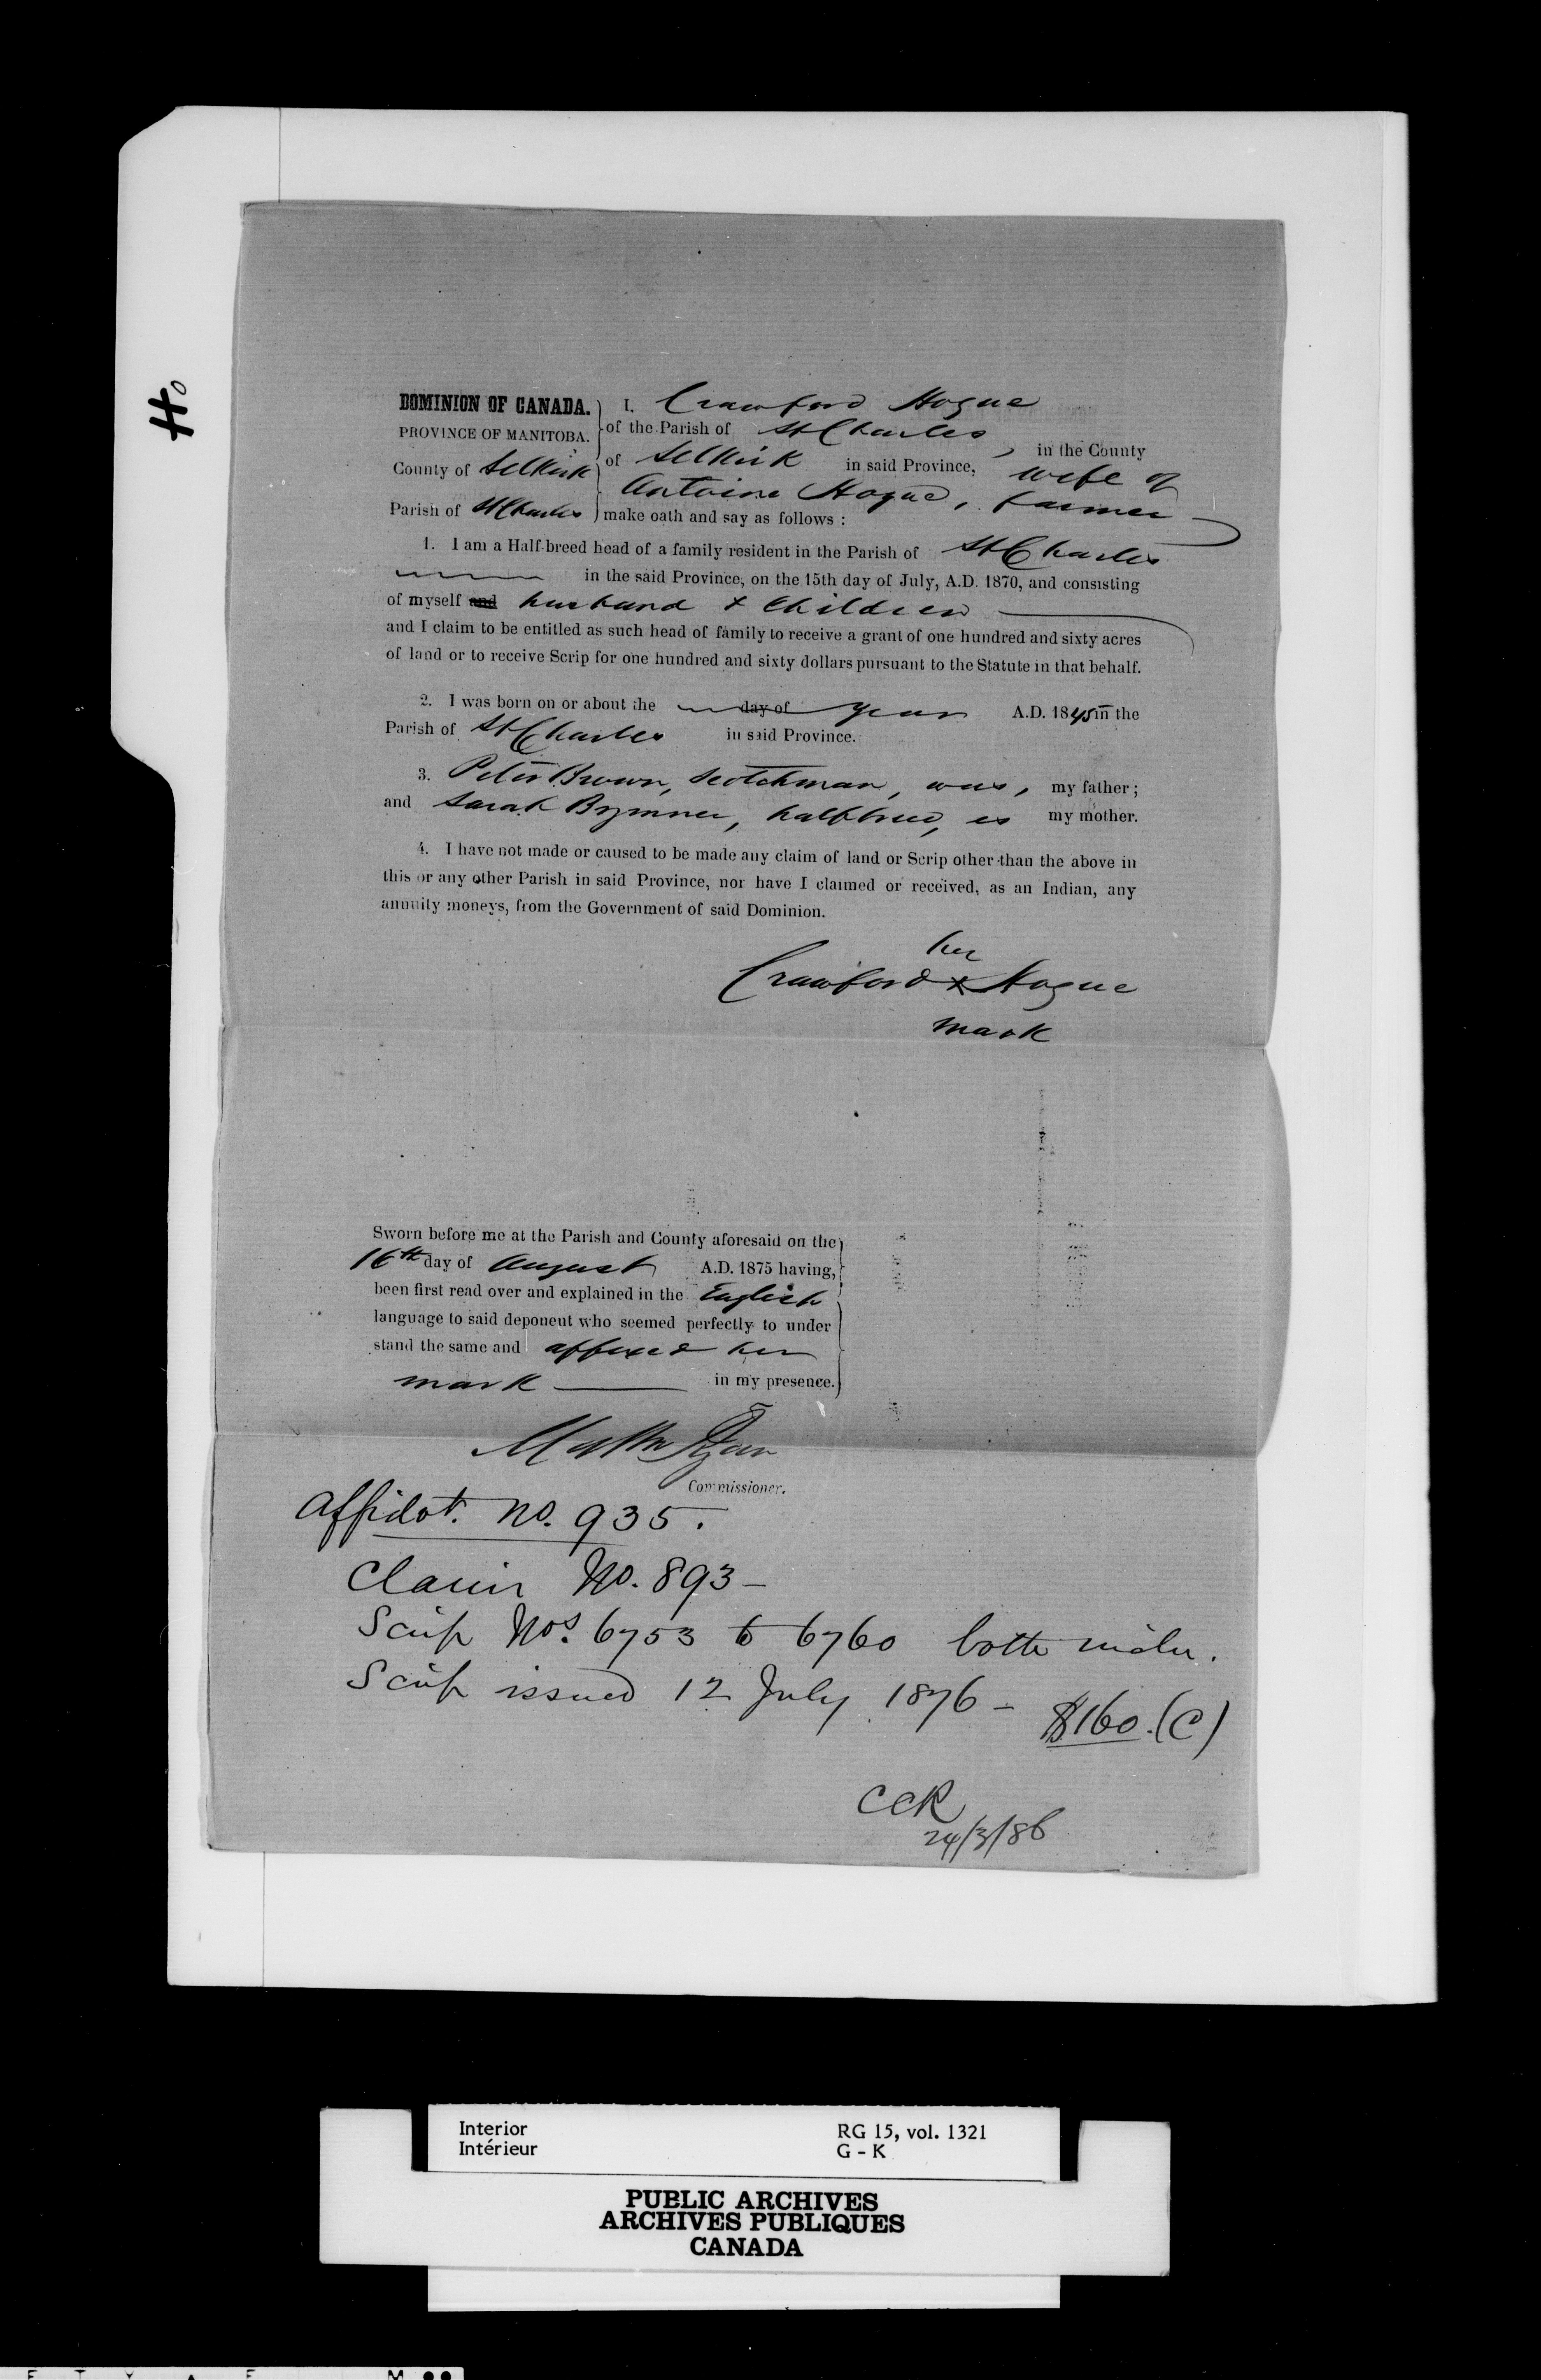 Ho
DOMINION OF CANADA. I, Crawford Hogue
PROVINCE OF MANITOBA. of the Parish of St Charles
County of Selkirk of Selkirk in said Province, in the County
wife of
Antoine Hogue, farmer
Parish of St Charles make oath and say as follows :
1. I am a Half-breed head of a family resident in the Parish of St Charles
in the said Province, on the 15th day of July, A.D. 1870, and consisting
of myself and husband & children
and I claim to be entitled as such head of family to receive a grant of one hundred and sixty acres
of land or to receive Scrip for one hundred and sixty dollars pursuant to the Statute in that behalf.
2. I was born on or about the day of year A.D. 1845 in the
Parish of St Charles in said Province.
3. Peter Brown, Scotchman, was, my father ;
and Sarah Brymner, halfbreed, is my mother.
4. I have not made or caused to be made any claim of land or Scrip other than the above in
this or any other Parish in said Province, nor have I claimed or received, as an Indian, any
annuity moneys, from the Government of said Dominion.
her
Crawford x Hogue
mark
Sworn before me at the Parish and County aforesaid on the
16th day of August A.D. 1875 having,
been first read over and explained in the English
language to said deponent who seemed perfectly to under
stand the same and affixed her
mark in my presence.
Matth Ryan
Commissioner.
Affidat. No. 935.
Claim No. 893 -
Scrip Nos. 6753 to 6760 both
Scrip issued 12 July 1876 - $160. (C)
CCR
24/3/86
Interior RG 15, vol. 1321
Intérieur G - K
PUBLIC ARCHIVES
ARCHIVES PUBLIQUES
CANADA